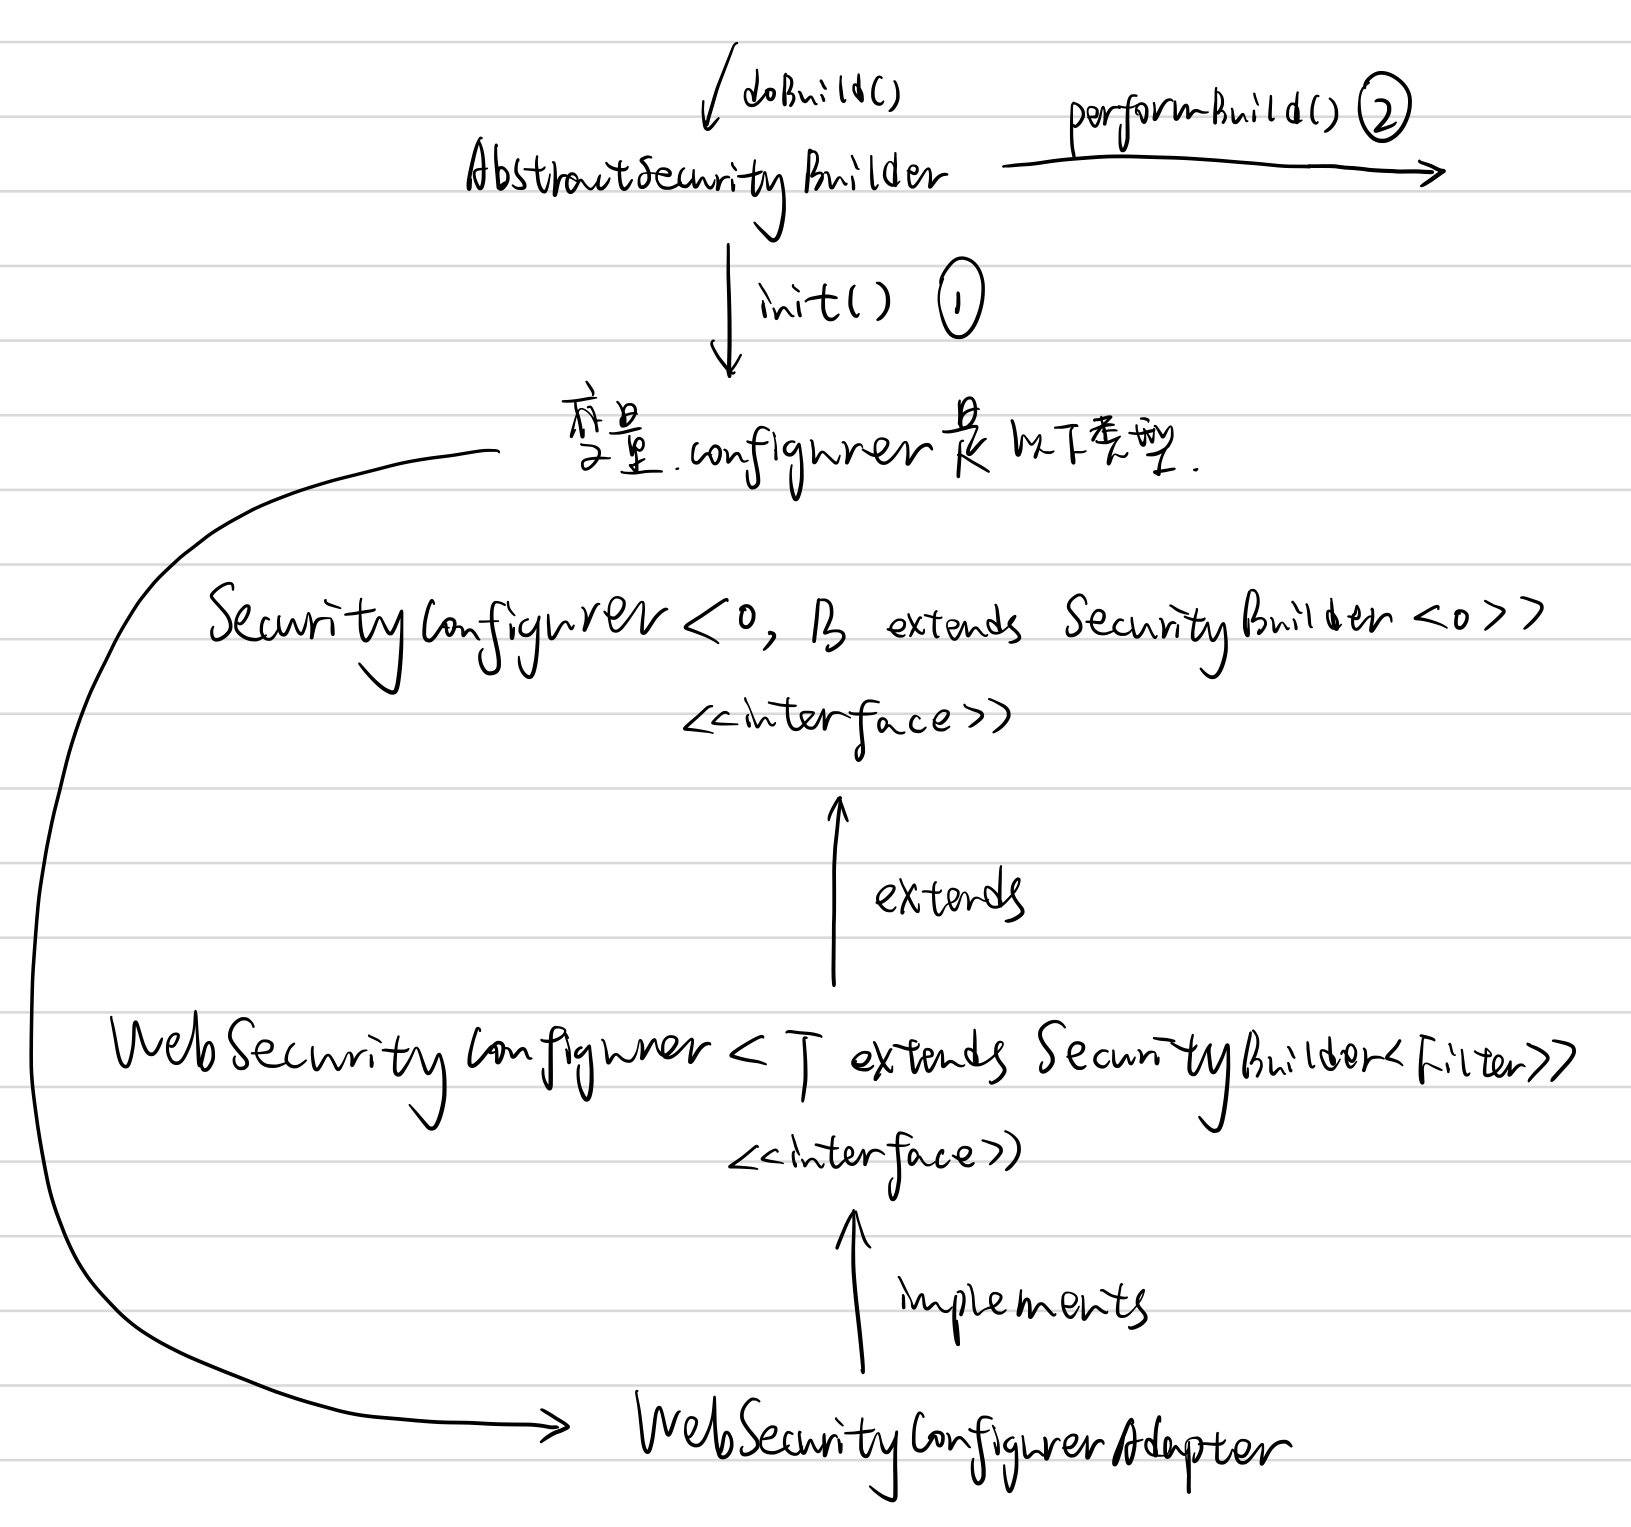 doBuild()
performBuild() ②
AbstractSecurityBuilder
init() ①
变量.configurer是以下类型.
SecurityConfigurer<O, B extends SecurityBuilder<O>>
<<interface>>
extends
WebSecurityConfigurer<T extends SecurityBuilder<Filter>>
<<interface>>
implements
WebSecurityConfigurerAdapter